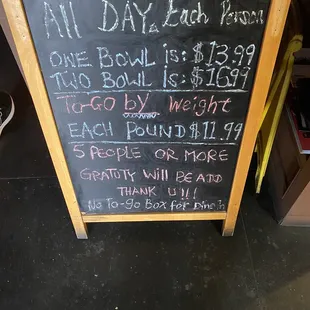 All DAY, Each Person
ONE BOWL is: $13.99
TWO BOWL is: $16.99
To-Go by Weight
EACH POUND $11.99
5 PEOPLE OR MORE
GRATUTY WILL BE ADD
THANK U!!!
No To-go Box for Dine in